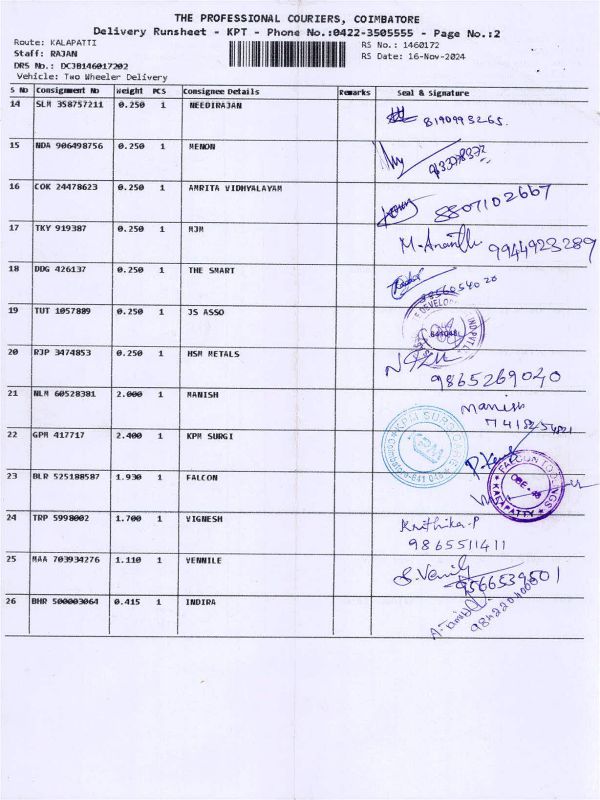 THE PROFESSIONAL COURIERS, COIMBATORE
Delivery Runsheet - KPT - Phone No.:0422-3505555 - Page No.:2
Route: KALAPATTI RS No.: 1460172
Staff: RAJAN RS Date: 16-Nov-2024
DRS No.: DCJB146017202
Vehicle: Two Wheeler Delivery
S No Consignment No Weight PCS Consignee Details Remarks Seal & Signature
14 SLM 358757211 0.250 1 NEEDIRAJAN 8190993265.
15 NDA 906498756 0.250 1 MENON
16 COK 24478623 0.250 1 AMRITA VIDHYALAYAM 8807102667
17 TKY 919387 0.250 1 MJM M.Ananth 9944923289
18 DDG 426137 0.250 1 THE SMART
19 TUT 1057889 0.250 1 JS ASSO
20 RJP 3474853 0.250 1 HSM METALS 9865269040
21 NLM 60528381 2.000 1 MANISH Manish
22 GPM 417717 2.400 1 KPM SURGI
23 BLR 525188587 1.930 1 FALCON FALCON TOOLINGS KALAPATTY
24 TRP 5998002 1.700 1 VIGNESH Krithika-P
9865511411
25 MAA 703934276 1.110 1 VENNILE 9566539501
26 BHR 500003064 0.415 1 INDIRA